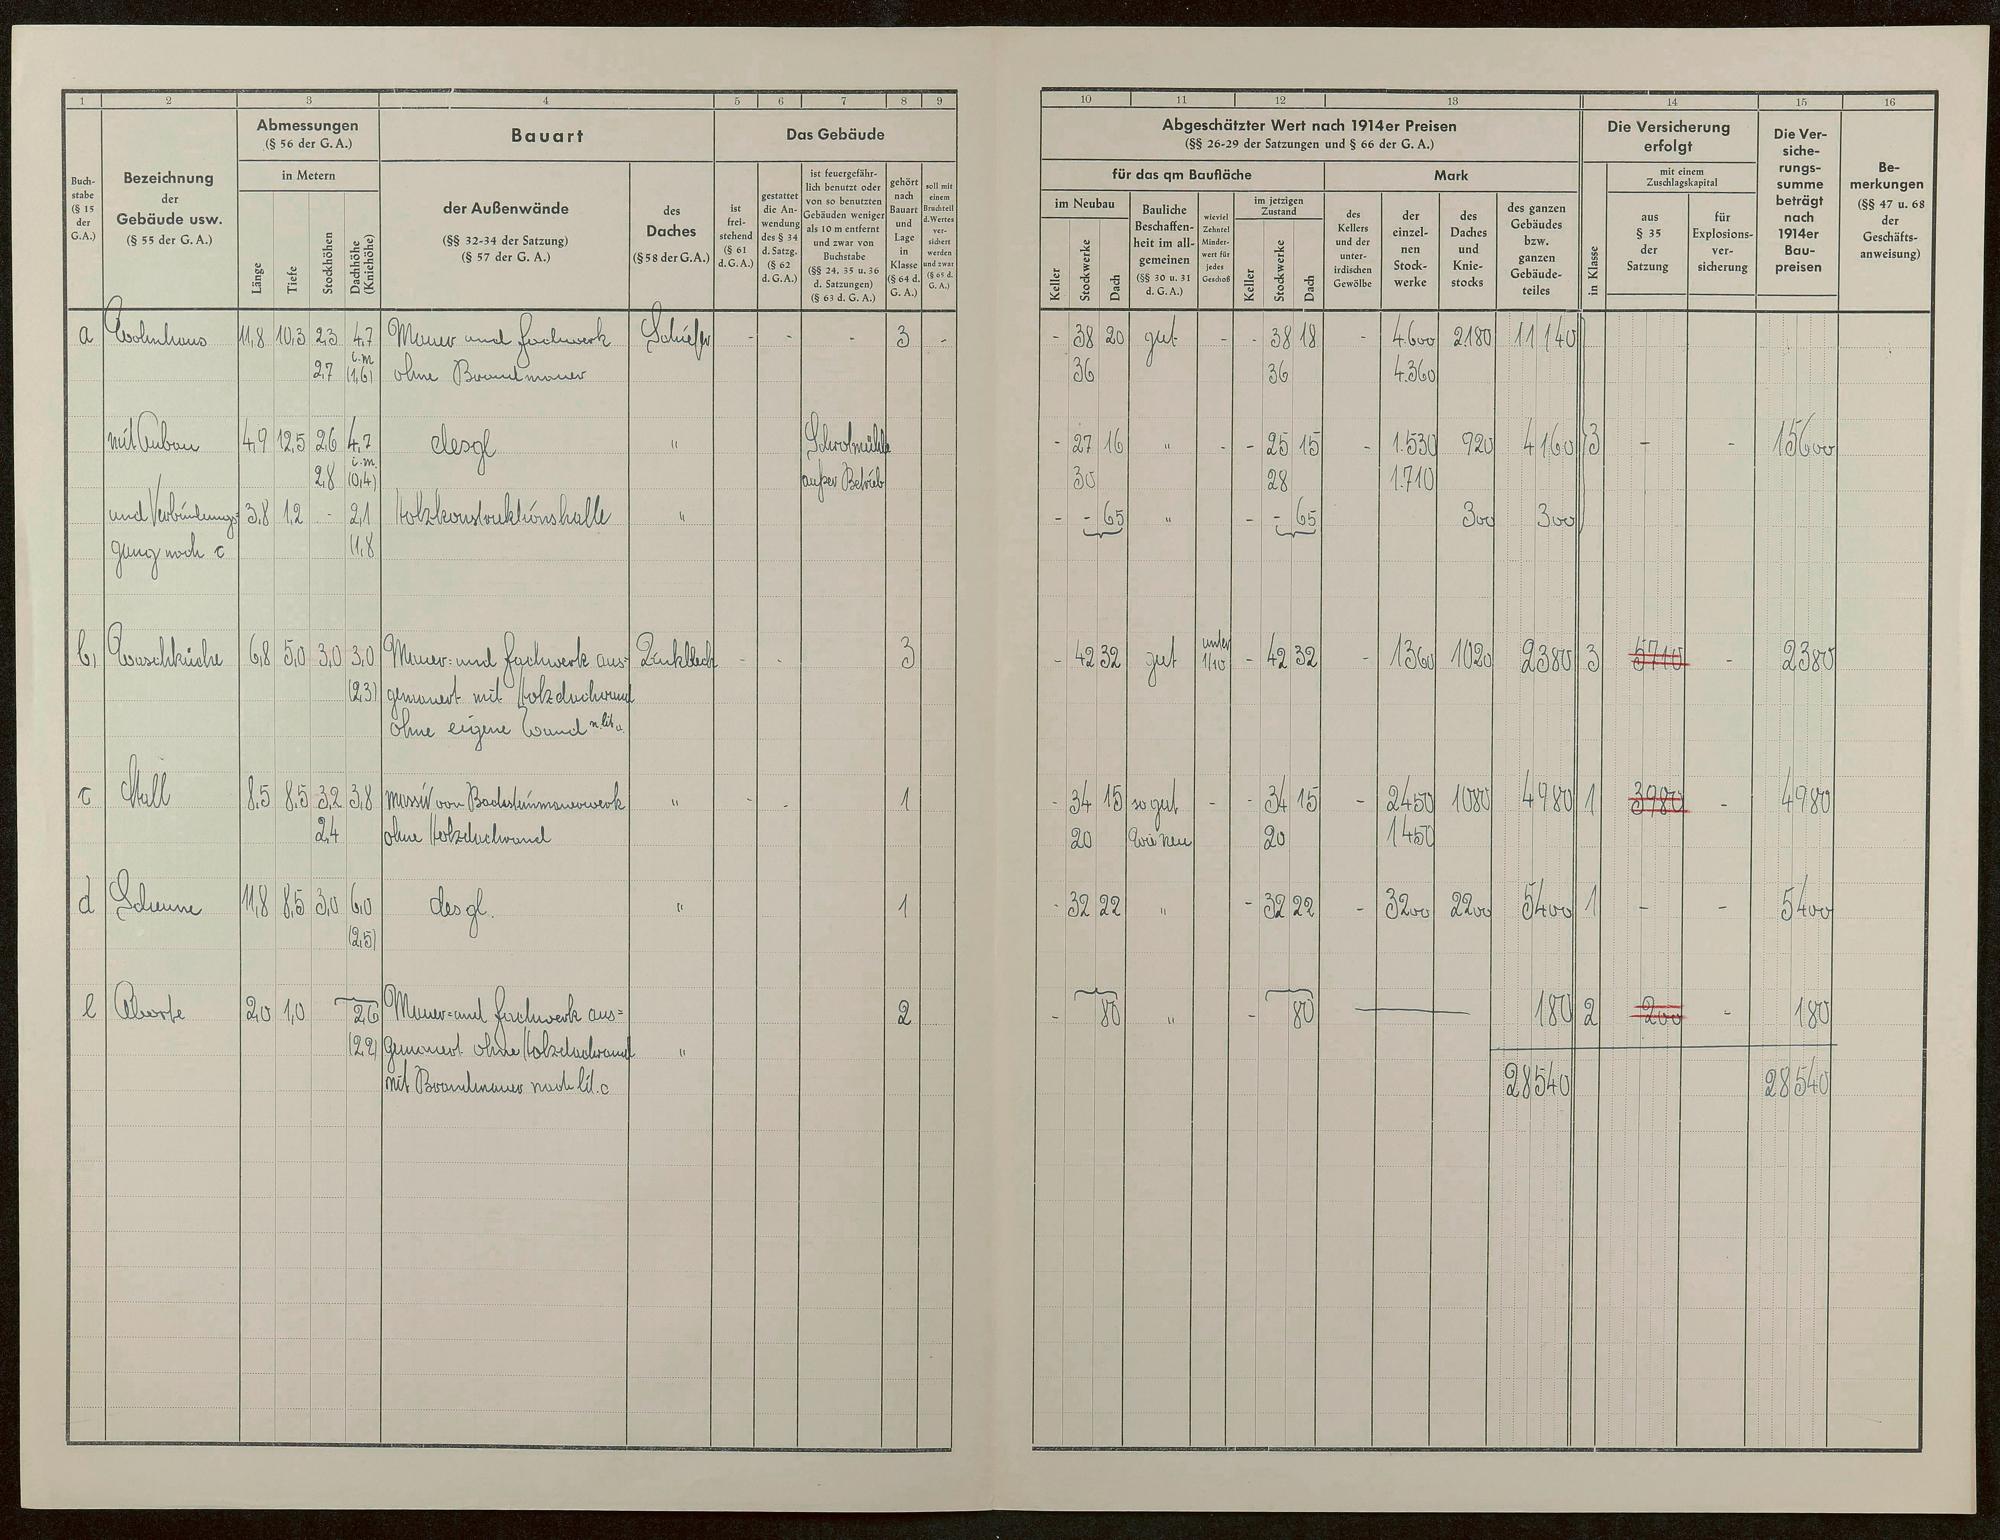 1 2 3 4 5 6 7 8 9 10 11 12 13 14 15 16
Buch-
stabe
(§ 15
der
G.A.)
Bezeichnung
der
Gebäude usw.
(§ 55 der G. A.)
Abmessungen
(§ 56 der G. A.)
in Metern
Länge
Tiefe
Stockhöhen
Dachhöhe
(Kniehöhe)
Bauart
der Außenwände
(§§ 32-34 der Satzung)
(§ 57 der G. A.)
des
Daches
(§58 der G.A.)
Das Gebäude
ist
frei-
stehend
(§ 61
d.G.A.)
gestattet
die An-
wendung
des § 34
d. Satzg.
(§ 62
d. G.A.)
ist feuergefähr-
lich benutzt oder
von so benutzten
Gebäuden weniger
als 10 m entfernt
und zwar von
Buchstabe
(§§ 24, 35 u. 36
d. Satzungen)
(§ 63 d. G. A.)
gehört
nach
Bauart
und
Lage
in
Klasse
(§ 64 d.
G. A.)
soll mit
einem
Bruchteil
d.Wertes
ver-
sichert
werden
und zwar
(§ 65 d.
G. A.)
Abgeschätzter Wert nach 1914er Preisen
(§§ 26-29 der Satzungen und § 66 der G. A.)
für das qm Baufläche
im Neubau
Keller
Stockwerke
Dach
Bauliche
Beschaffen-
heit im all-
gemeinen
(§§ 30 u. 31
d. G.A.)
wieviel
Zehntel
Minder-
wert für
jedes
Geschoß
im jetzigen
Zustand
Keller
Stockwerke
Dach
Mark
des
Kellers
und der
unter-
irdischen
Gewölbe
der
einzel-
nen
Stock-
werke
des
Daches
und
Knie-
stocks
des ganzen
Gebäudes
bzw.
ganzen
Gebäude-
teiles
Die Versicherung
erfolgt
in Klasse
mit einem
Zuschlagskapital
aus
§ 35
der
Satzung
für
Explosions-
ver-
sicherung
Die Ver-
siche-
rungs-
summe
beträgt
nach
1914er
Bau-
preisen
Be-
merkungen
(§§ 47 u. 68
der
Geschäfts-
anweisung)
a Wohnhaus 11,8 10,3 2,3 4,7 Mauer und Fachwerk Schiefer - - - 3 - - 38 20 gut - - 38 18 - 4.600 2.180 11 140
2,7 i.m. (1,6) ohne Brandmauer 36 36 4.360
mit Anbau 4,9 12,5 2,6 4,7 desgl " Schrotmühle - 27 16 " - - 25 15 - 1.530 920 4160 3 - - 15600
2,8 i.m. (0,4) außer Betrieb 30 28 1.710
und Verbindungs- 3,8 1,2 - 2,1 Holzkonstruktionshalle " - - 65 " - - 65 300 300
gang nach c (1,8
b, Waschküche 6,8 5,0 3,0 3,0 Mauer- und Fachwerk aus- Zinkblech - - 3 - 42 32 gut unter 1/10 - 42 32 - 1360 1020 2380 3 5710 - 2380
(2,3) gemauert mit Holzdachwand
ohne eigene Wand n. lit a.
c Stall 8,5 8,5 3,2 3,8 massiv von Backsteinmauerwerk " - - 1 - 34 15 so gut - - 34 15 - 2450 1080 4980 1 3980 - 4980
2,4 ohne Holzdachwand 20 wie neu 20 1450
d Scheune 11,8 8,5 3,0 6,0 desgl. " 1 - 32 22 " - 32 22 - 3200 2200 5400 1 - - 5400
(2,5)
e Aborte 2,0 1,0 2,6 Mauer- und Fachwerk aus= 2 - 80 " - 80 180 2 200 - 180
(2,2) gemauert ohne Holzdachwand "
mit Brandmauer nach lit. c 28540 28540